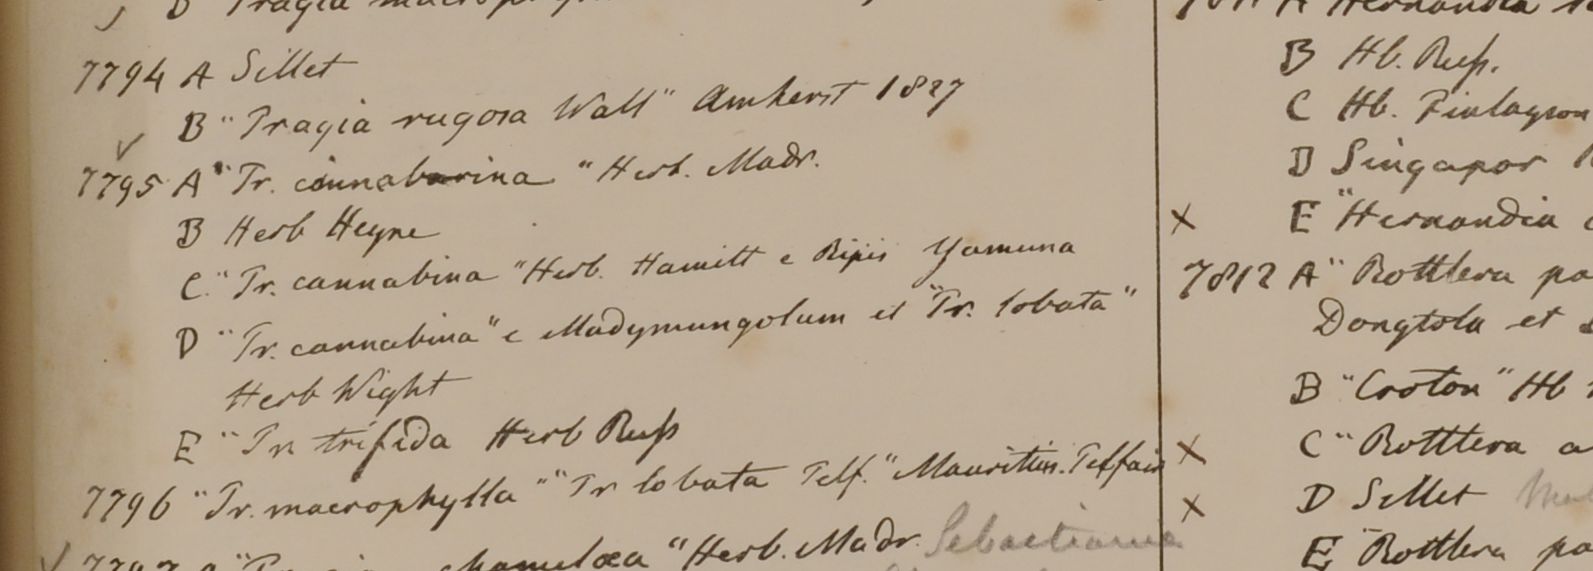 B Tragia
7794 A Sillet
B "Tragia rugosa Wall" Amherst 1827
7795 A "Tr. cannabina" Herb. Madr.
B Herb Heyne
C. "Tr. cannabina" Herb. Hamilt e Ripis Yamuna
D "Tr. cannabina" e Madymungolum et "Tr. lobata"
Herb Wight
E "Tr. trifida Herb Russ
7796 "Tr. macrophylla" "Tr lobata Telf." Mauritius. Telfair
7797 chamelæa "Herb. Madr. Sebastiania
A Hernandia
B Hb. Russ.
C Hb. Finlayson
D Singapor
E "Hernandia
7812 A "Rottlera pa
Dongtola et
B "Croton" Hb
C "Rottlera a
D Sillet
E "Rottlera pa